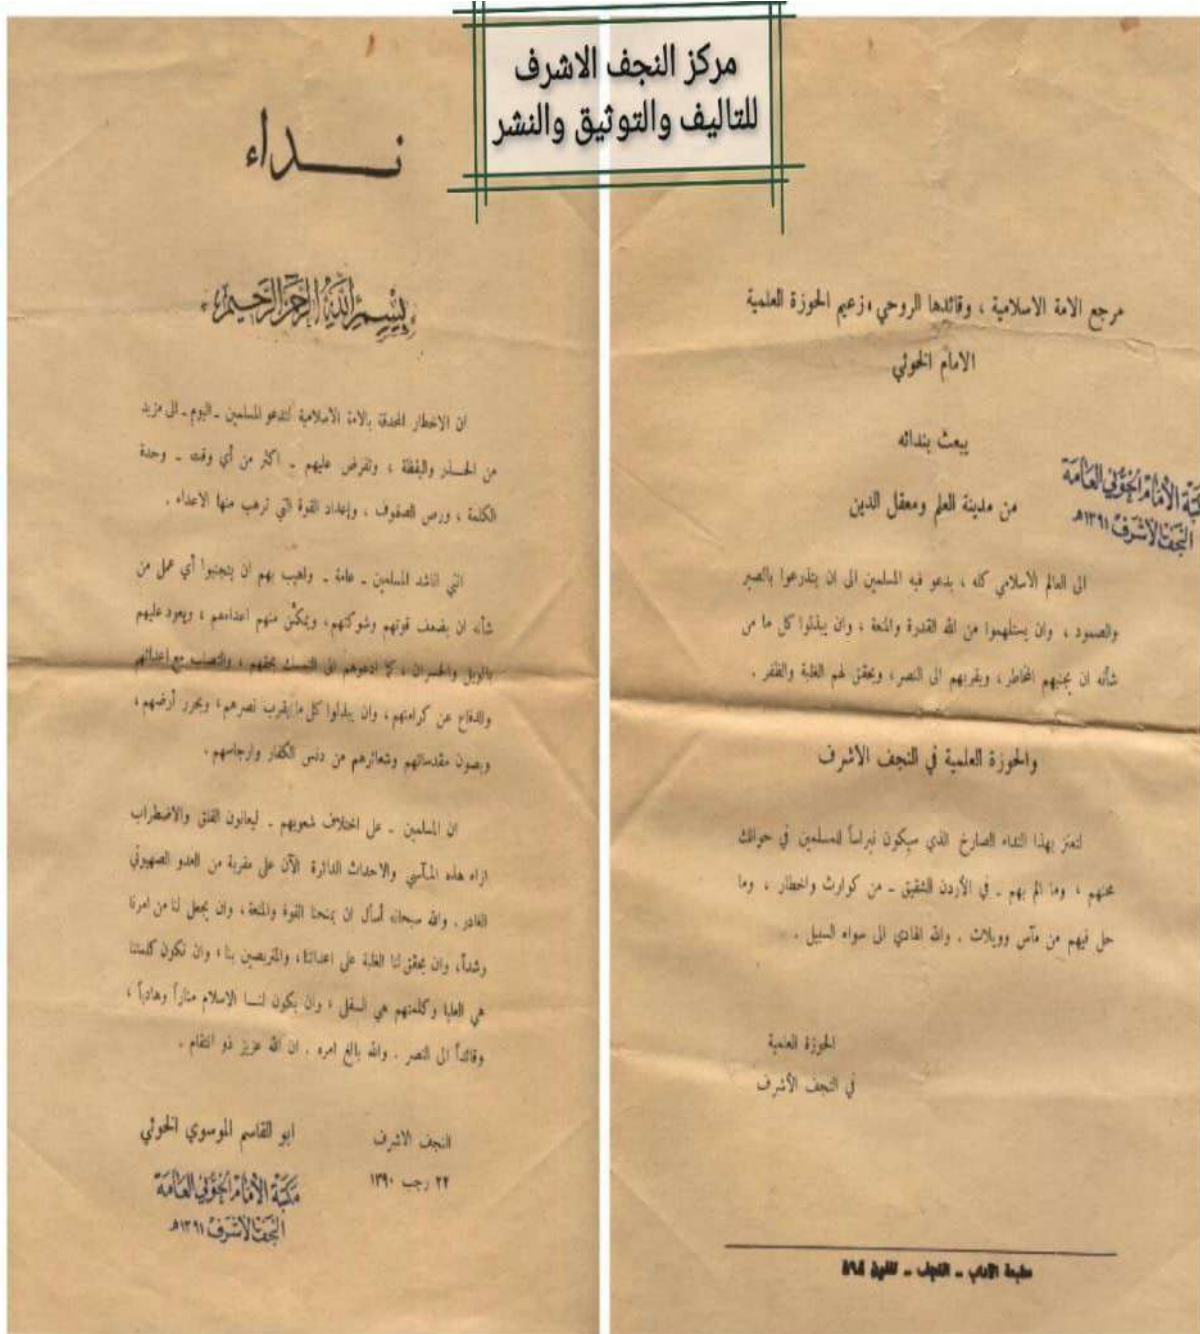 مركز النجف الاشرف
للتاليف والتوثيق والنشر
مرجع الامة الاسلامية ، وقائدها الروحي ، زعيم الحوزة العلمية
الامام الخوئي
يبعث بندائه
من مدينة العلم ومعقل الدين
مكتبة الامام الخوئي العامة
النجف الاشرف ١٣٩١هـ
الى العالم الاسلامي كله ، يدعو فيه المسلمين الى ان يتذرعوا بالصبر
والصمود ، وان يستلهموا من الله القدرة والمنعة ، وان يبذلوا كل ما من
شأنه ان يجنبهم المخاطر ، ويقربهم الى النصر ، ويحقق لهم الغلبة والظفر .
والحوزة العلمية في النجف الاشرف
لتعتز بهذا النداء الصارخ الذي سيكون نبراساً للمسلمين في حوالك
محنهم ، وما الم بهم ـ في الأردن الشقيق ـ من كوارث واخطار ، وما
حل فيهم من مآس وويلات . والله الهادي الى سواء السبيل .
الحوزة العلمية
في النجف الأشرف
مطبعة الآداب ـ النجف ـ تلفون ٥٩٤
نـــداء
بسم الله الرحمن الرحيم
ان الاخطار المحدقة بالامة الاسلامية لتدعو المسلمين ـ اليوم ـ الى مزيد
من الحـذر واليقظة ، وتفرض عليهم ـ اكثر من أي وقت ـ وحدة
الكلمة ، ورص الصفوف ، وإعداد القوة التي ترهب منها الاعداء .
انني اناشد المسلمين ـ عامة ـ واهيب بهم ان يتجنبوا أي عمل من
شأنه ان يضعف قوتهم وشوكتهم ، ويمكّن منهم اعداءهم ، ويعود عليهم
بالويل والخسران ، كما ادعوهم الى التمسك بحقهم ، والتصلب مع اعدائهم
والدفاع عن كرامتهم ، وان يبذلوا كل ما يقرب نصرهم ، ويحرر أرضهم ،
ويصون مقدساتهم وشعائرهم من دنس الكفار وارجاسهم .
ان المسلمين ـ على اختلاف شعوبهم ـ ليعانون القلق والاضطراب
ازاء هذه المآسي والاحداث الدائرة الآن على مقربة من العدو الصهيوني
الغادر . والله سبحانه أسأل ان يمنحنا القوة والمنعة ، وان يجعل لنا من امرنا
رشداً ، وان يحقق لنا الغلبة على اعدائنا ، والمتربصين بنا ، وان تكون كلمتنا
هي العليا وكلمتهم هي السفلى ، وان يكون لنـا الاسلام مناراً وهادياً ،
وقائداً الى النصر . والله بالغ امره . ان الله عزيز ذو انتقام .
النجف الاشرف
ابو القاسم الموسوي الخوئي
٢٢ رجب ١٣٩٠
مكتبة الامام الخوئي العامة
النجف الاشرف ١٣٩١هـ